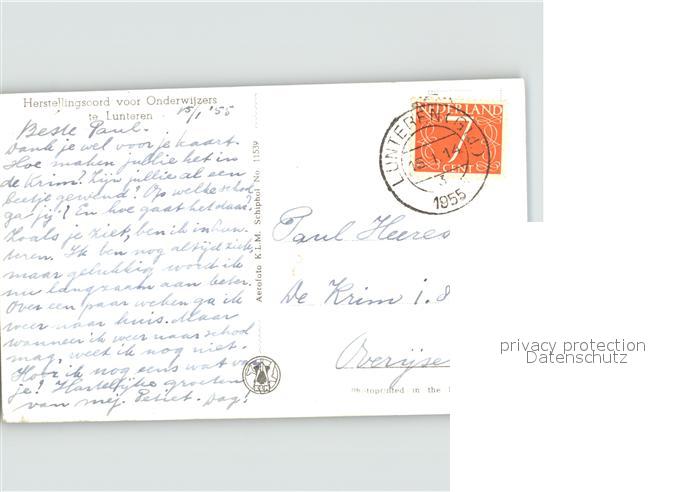 Herstellingsoord voor Onderwijzers
te Lunteren
15/1 '55
Beste Paul.
Dank je wel voor je kaart.
Hoe maken jullie het in
de Krim? Zijn jullie al een
beetje gewend? Op welke school
ga jij? En hoe gaat het daar?
Zoals je ziet, ben ik in Lun-
teren. Ik ben nog altijd ziek,
maar gelukkig word ik
nu langzaam aan beter.
Over een paar weken ga ik
weer naar huis. Maar
wanneer ik weer naar school
mag, weet ik nog niet.
Hoor ik nog eens wat van
je? Hartelijke groeten
van mej. Petiet. Dag!
Aerofoto K.L.M. Schiphol No. 11539
NEDERLAND
7
CENT
LUNTEREN
1955
Paul Heeres
De Krim i. 8
Overijse
Photoprinted in the
privacy protection
Datenschutz